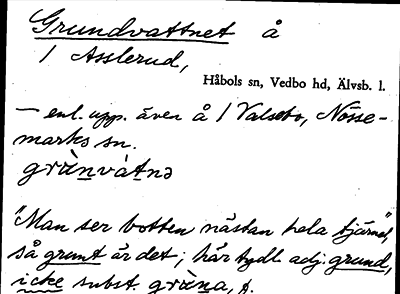 Grundvattnet å
1 Asslerud,
Håbols sn, Vedbo hd, Älvsb. l.
— enl. upp. även å 1 Valsebo, Nösse-
marks sn.
grùnvàtnə
"Man ser botten nästan hela tjärnet,
så grunt är det; här tydl. adj. grund,
icke subst. grùna, f.